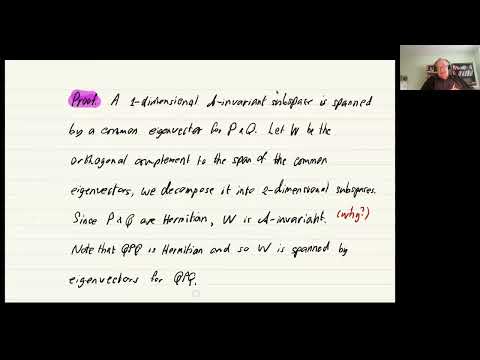 Proof. A 1-dimensional A-invariant subspace is spanned
by a common eigenvector for P & Q. Let W be the
orthogonal complement to the span of the common
eigenvectors, we decompose it into 2-dimensional subspaces.
Since P & Q are Hermitian, W is A-invariant. (why?)
Note that QPQ is Hermitian and so W is spanned by
eigenvectors for QPQ.